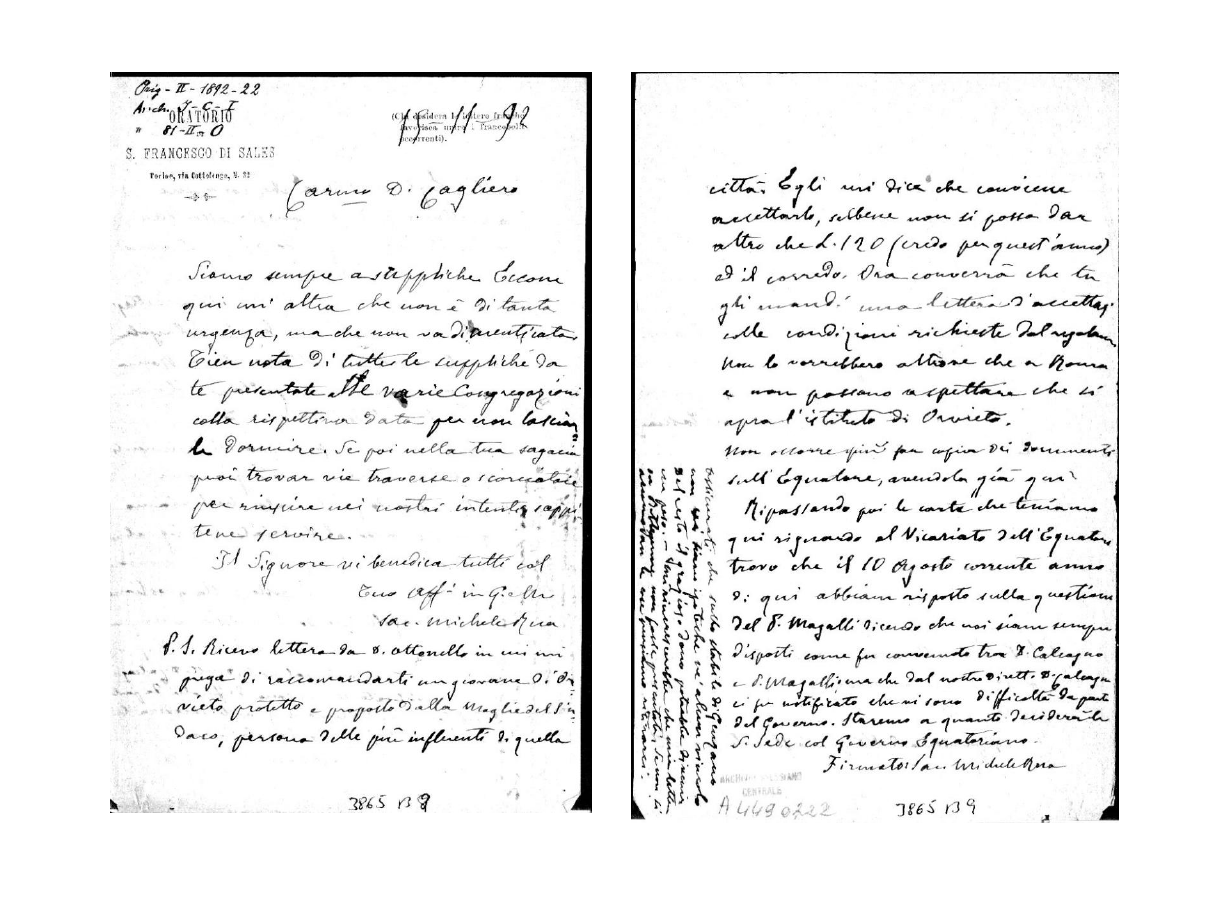 Orig - II - 1892-22
Arch. J - C - I
" 81-II- O
ORATORIO
(Chi desidera lettera
favorisca unire i francobolli
occorrenti).
15 11 92
S. FRANCESCO DI SALES
Torino, via Cottolengo, N. 32
Carmo D. Cagliero
Siamo sempre a suppliche. Eccone
qui un' altra che non è di tanta
urgenza, ma che non va dimenticata
Tien nota di tutte le suppliche da
te presentate alle varie Congregazioni
colla rispettiva data per non lasciar
le dormire. Se poi nella tua sagacia
puoi trovar vie traverse o scorciatoie
per riuscire nei nostri intenti, sappi
tene servire.
Il Signore vi benedica tutti col
Tuo aff in G
Sac. Michele Rua
P. S. Ricevo lettera da D. Ottonello in cui mi
prega di raccomandarti un giovane di Or
vieto protetto e proposto dalla Moglie del Sin
daco, persona delle più influenti di quella
3865 B 9
città. Egli mi dice che conviene
accettarlo, sebbene non si possa dar
altro che L. 120 (credo per quest'anno)
ed il corredo. Ora converrà che tu
gli mandi una lettera d'accettaz
colle condizioni richieste dal regolam.
Non lo vorrebbero altrove che a Roma
e non possono aspettare che si
apra l'istituto di Orvieto.
Non occorre più far copia dei documenti
sull' Equatore, avendola già qui
Ripassando poi le carte che teniamo
qui riguardo al Vicariato dell'Equatore
trovo che il 10 Agosto corrente anno
di qui abbiam risposto sulla questione
del P. Magalli dicendo che noi siam sempre
disposti come fu convenuto tra D. Calcagno
e P. Magalli; ma che dal nostro Dirett. D. Calcagno
ci fu notificato che vi sono difficoltà da parte
del Governo. Staremo a quanto deciderà la
S. Sede col Governo Equatoriano.
Firmato: Sac. Michele Rua
Assicurati che sullo stabile di Genzano
non vi siano ipoteche nè alcun vincolo
del resto il grazioso dono potrebbe divenir
un peso.
ARCHIVIO SALESIANO
CENTRALE
A 4490222
3865 B 9